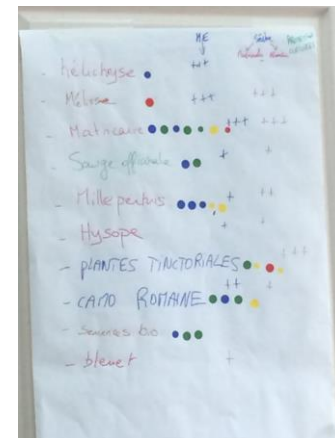 HE Sèche
- hélichryse +++
- Mélisse +++ +++
- Matricaire +++ +++
- Sauge officinale + +
- Millepertuis + ++
- Hysope + +
- PLANTES TINCTORIALES +++
- CAMO ROMAINE ++ +
- Semences bio
- bleuet +